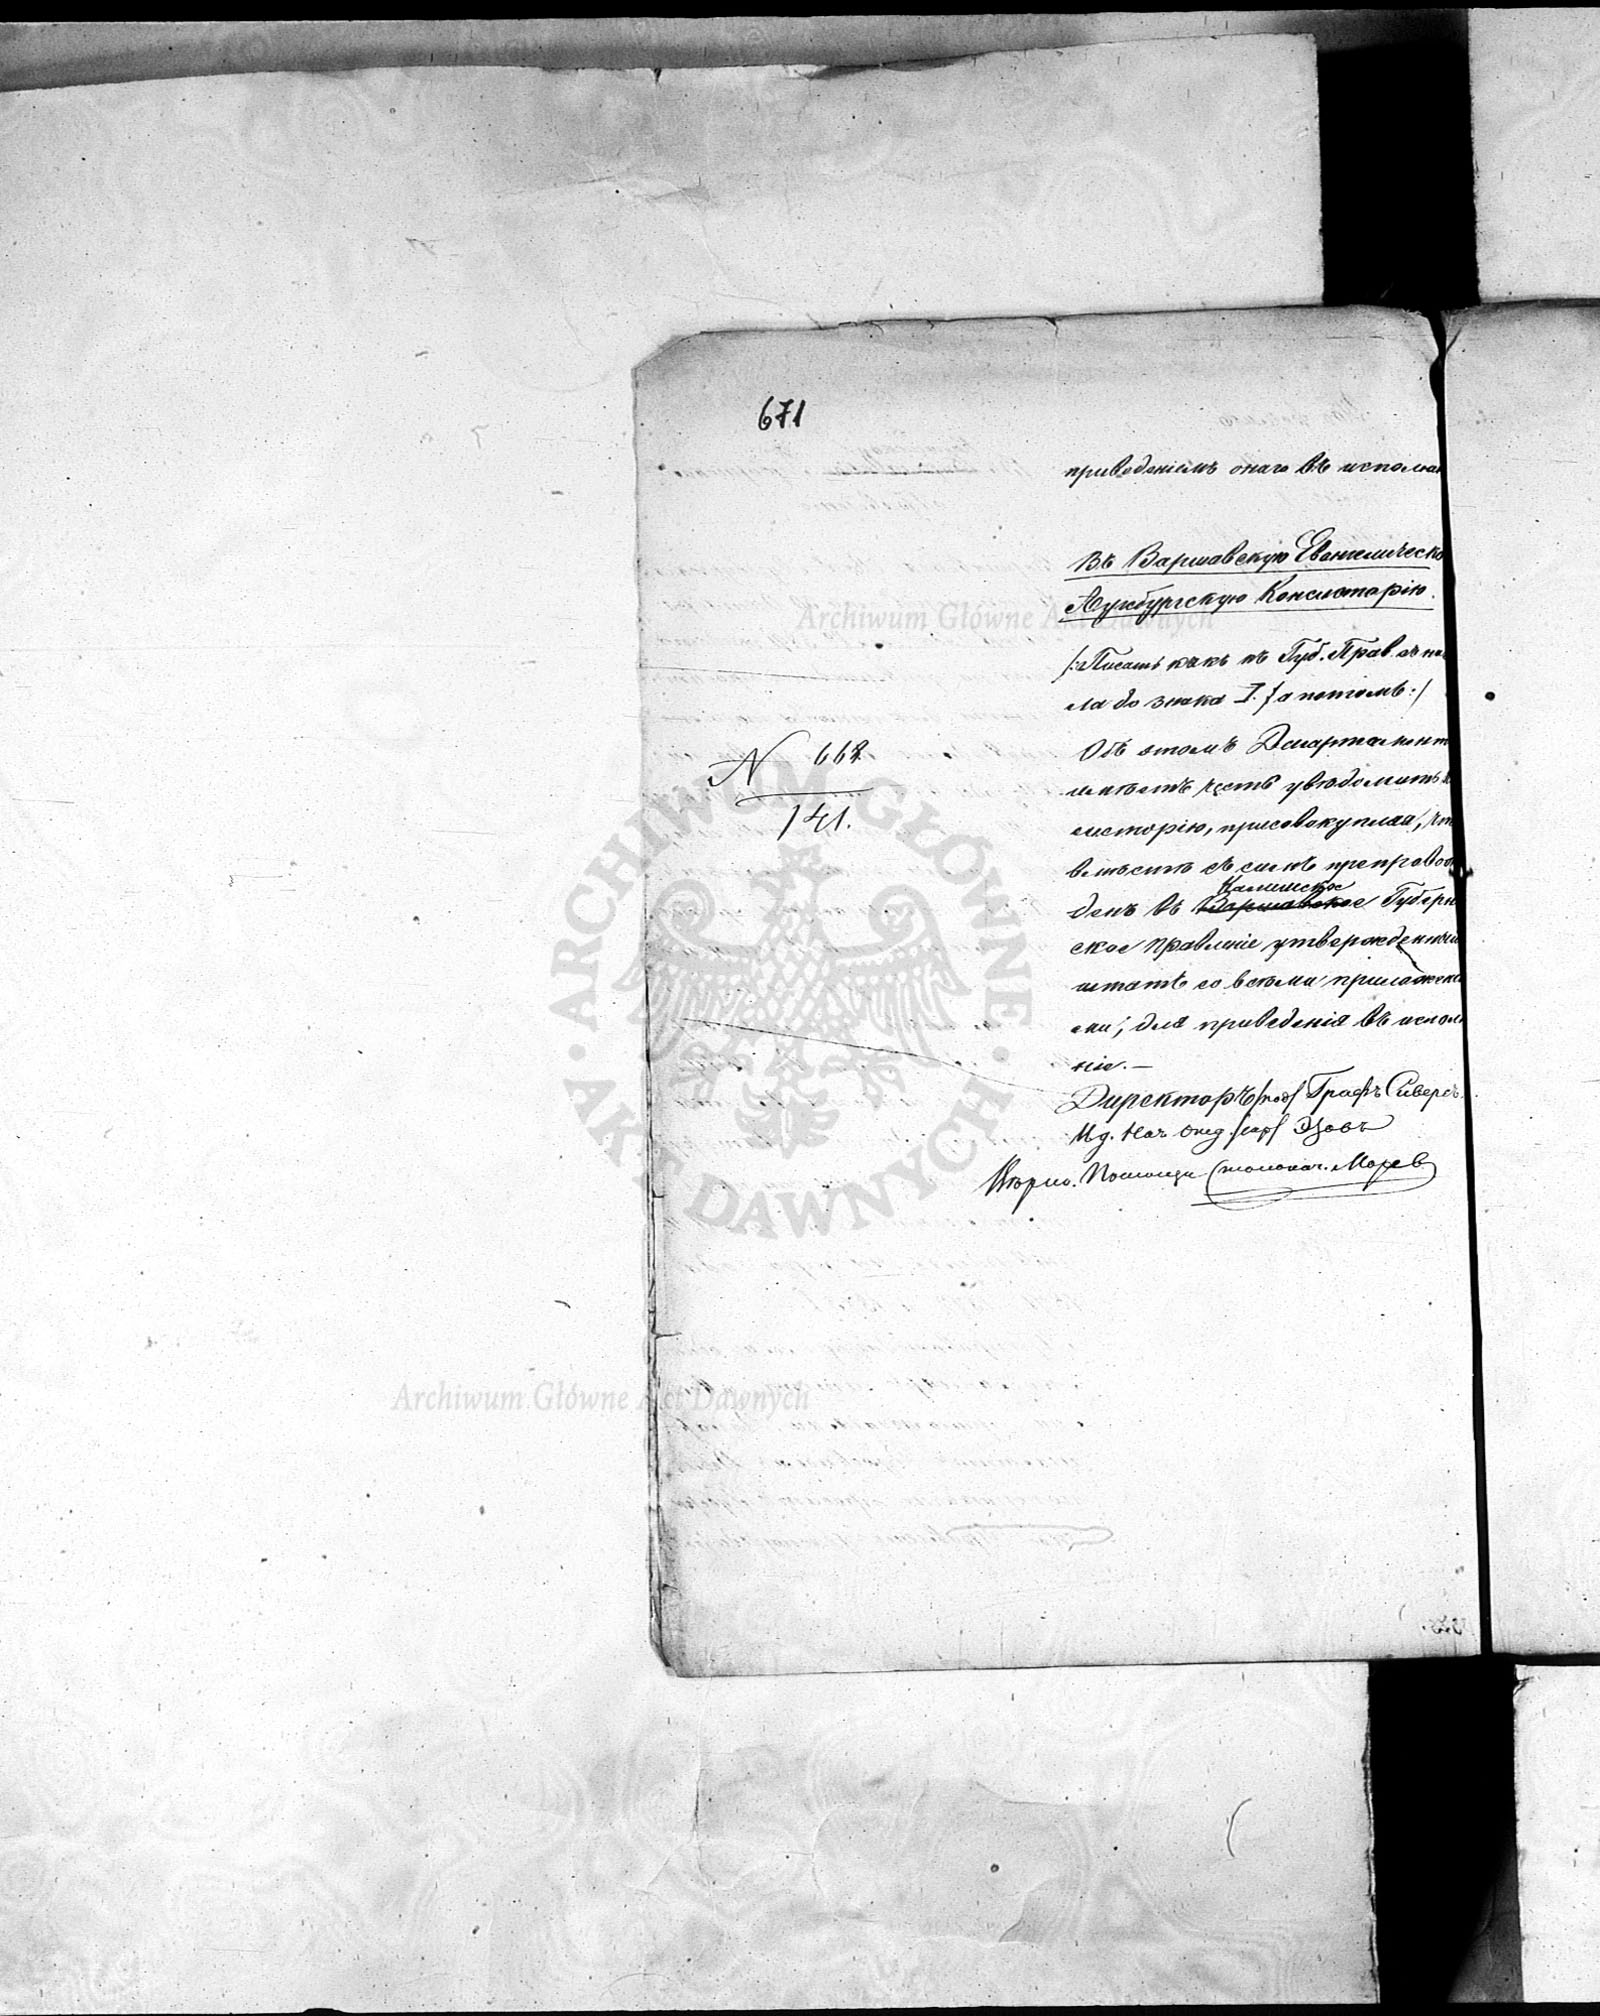 671
приведеніемъ онаго въ исполне
Въ Варшавскую Евангелическо
Аугсбургскую Консисторію.
/:Писать какъ въ Губ. Прав. съ на
ла до знака I. / а потомъ:/
N 668
141.
Объ этомъ Департаментъ
имѣетъ честь увѣдомить
систорію, присовокупляя, что
вмѣстѣ съ симъ препровож
Калишское
денъ въ Варшавское Губерн
ское Правленіе утвержденный
штатъ со всѣми приложені
ями, для приведенія въ исполн
ніе.—
Директоръ /под/ Графъ Сиверсъ.
И д. Нач. Отд.
Вѣрно. Помощн. Столонач.
Archiwum Główne Akt Dawnych
ARCHIWUM GŁÓWNE AKT DAWNYCH
Archiwum Główne Akt Dawnych